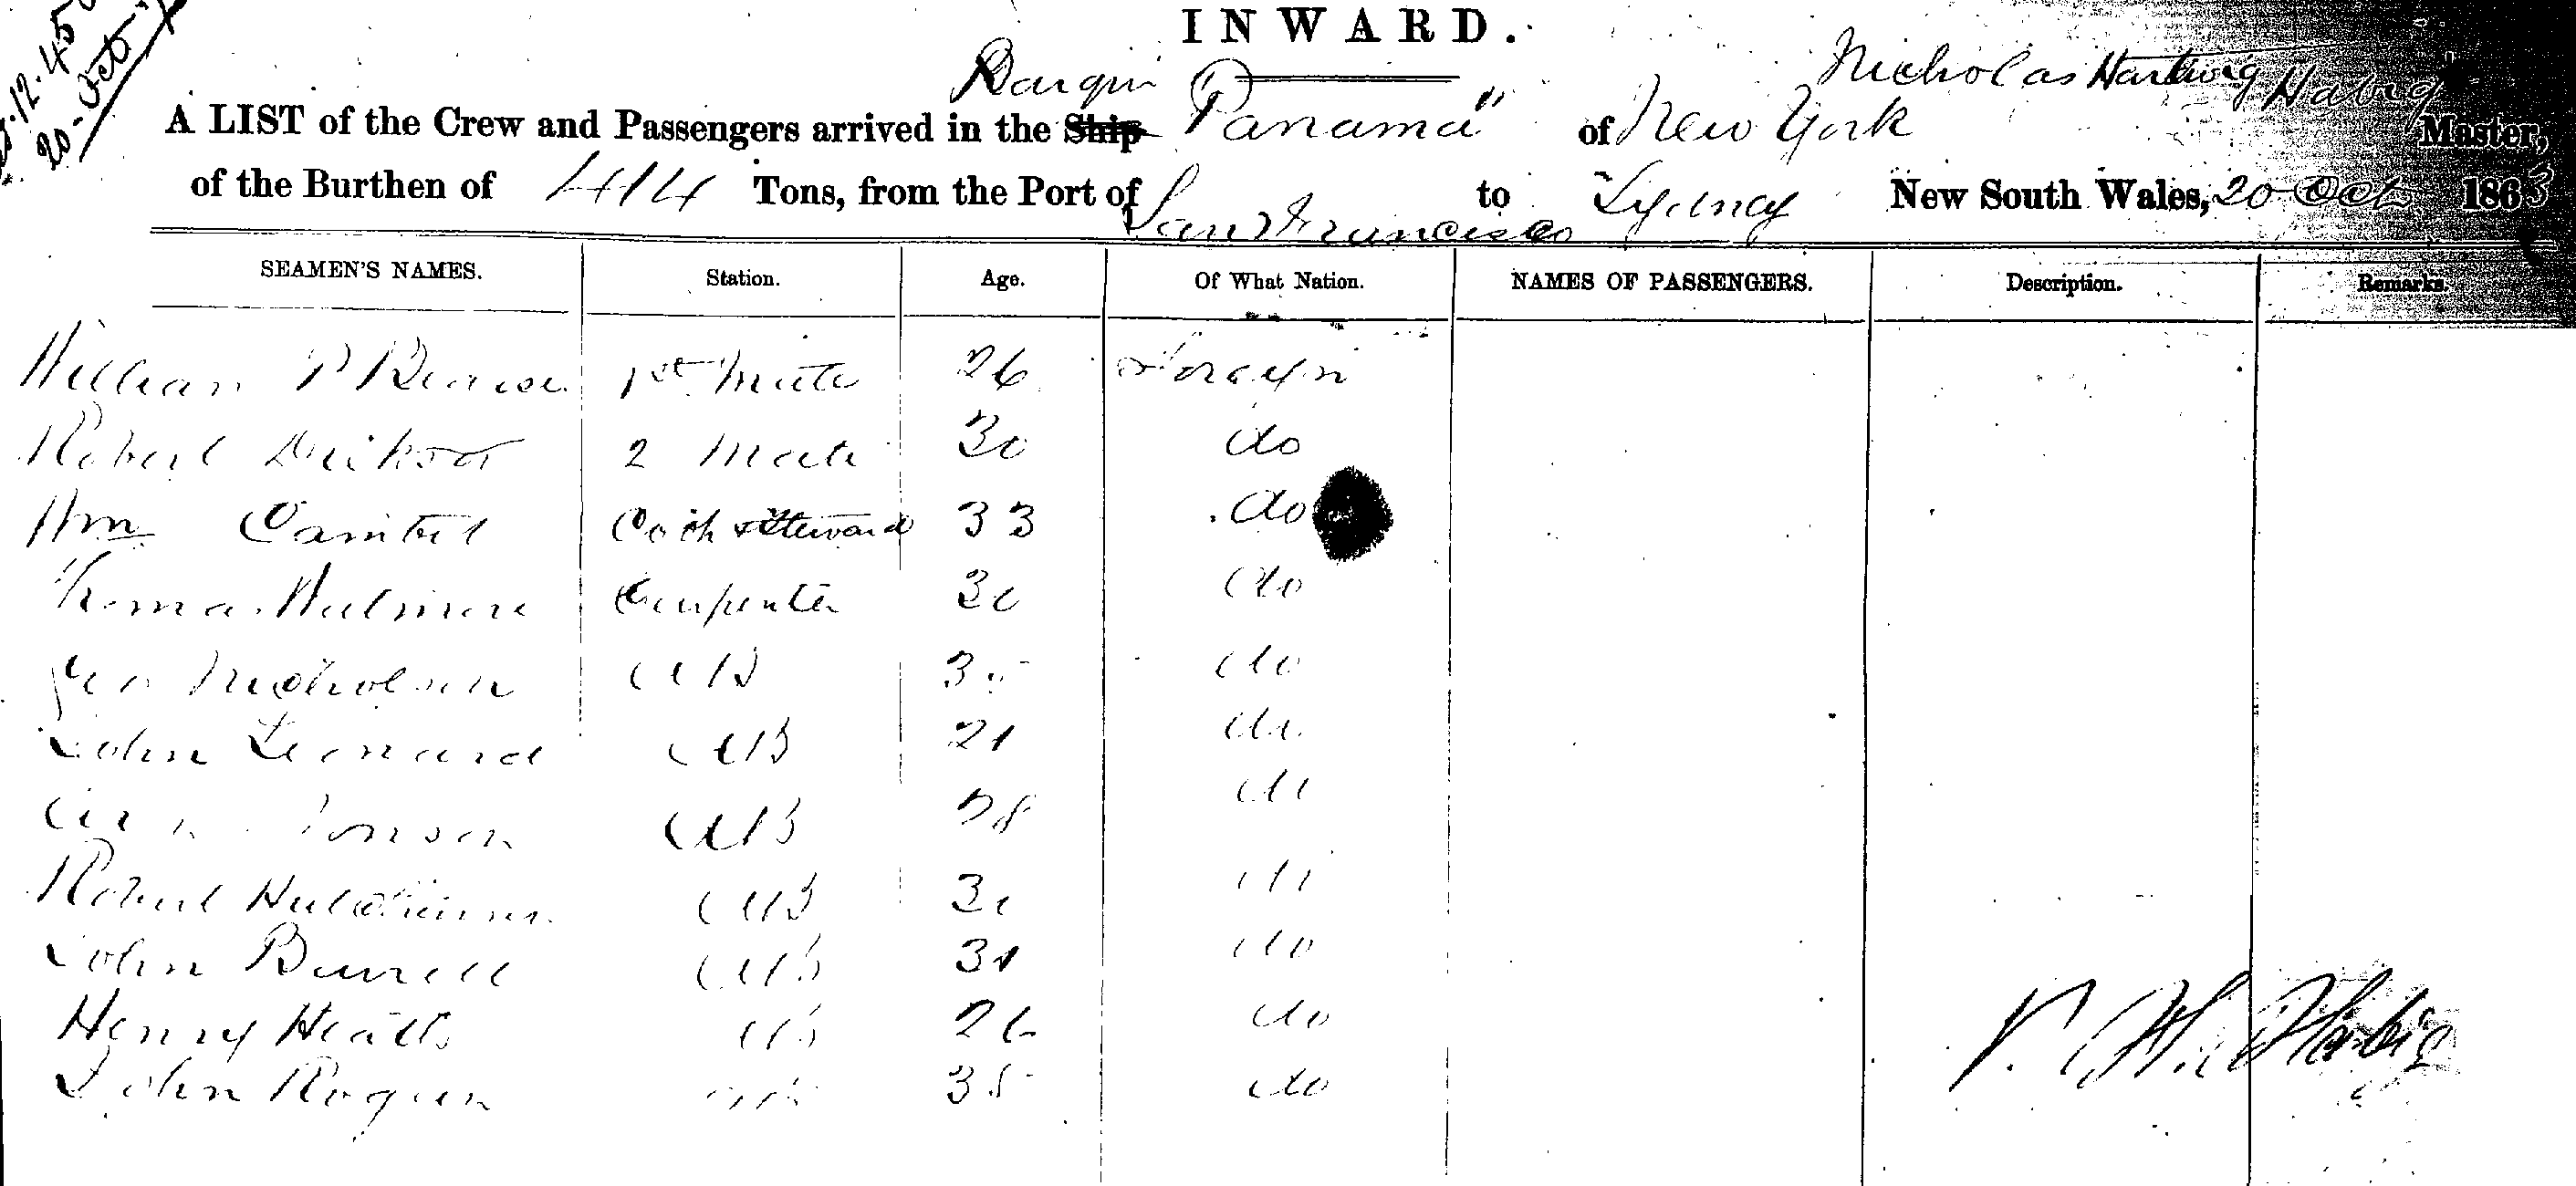 INWARD.
20-Oct
Barque Nicholas Hartwig Habig
A LIST of the Crew and Passengers arrived in the Ship "Panama" of New York Master,
of the Burthen of 414 Tons, from the Port of San Francisco to Sydney New South Wales, 20 Oct 1863
SEAMEN'S NAMES. Station. Age. Of What Nation. NAMES OF PASSENGERS. Description. Remarks.
William P 1st Mate 26 Foreign
Robert 2 Mate 30 do
Wm Cambel Cook & Steward 33 do
Thomas Carpenter 30 do
Nicholson AB 35 do
John Leonard AB 21 do
AB 28 do
Robert AB do
John Burrell AB 31 do
Henry AB 26 do
John AB 35 do
N. H. Habig